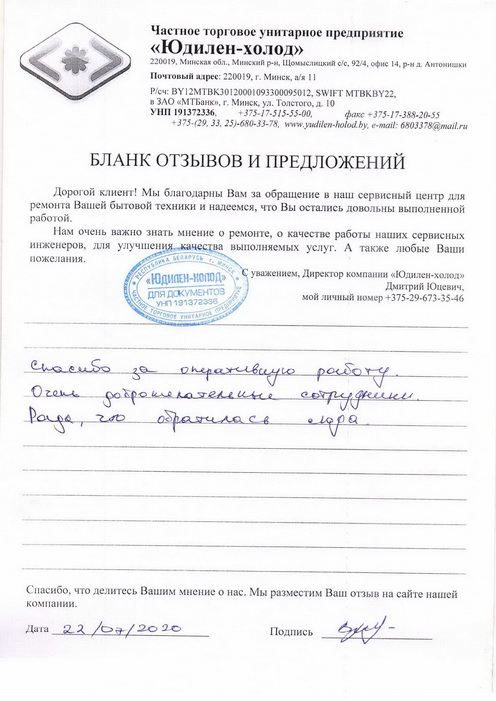 Частное торговое унитарное предприятие
«Юдилен-холод»
220019, Минская обл., Минский р-н, Щомыслицкий с/с, 92/4, офис 14, р-н д. Антонишки
Почтовый адрес: 220019, г. Минск, а/я 11
Р/сч: BY12MTBK30120001093300095012, SWIFT MTBKBY22,
в ЗАО «МТБанк», г. Минск, ул. Толстого, д. 10
УНП 191372336, +375-17-515-55-00, факс +375-17-388-20-55
+375-(29, 33, 25)-680-33-78, www.yudilen-holod.by, e-mail: 6803378@mail.ru
БЛАНК ОТЗЫВОВ И ПРЕДЛОЖЕНИЙ
Дорогой клиент! Мы благодарны Вам за обращение в наш сервисный центр для
ремонта Вашей бытовой техники и надеемся, что Вы остались довольны выполненной
работой.
Нам очень важно знать мнение о ремонте, о качестве работы наших сервисных
инженеров, для улучшения качества выполняемых услуг. А также любые Ваши
пожелания.
С уважением, Директор компании «Юдилен-холод»
Дмитрий Юцевич,
мой личный номер +375-29-673-35-46
РЕСПУБЛИКА БЕЛАРУСЬ г. МИНСК
«ЮДИЛЕН-ХОЛОД»
ДЛЯ ДОКУМЕНТОВ
УНП 191372336
ЧАСТНОЕ ТОРГОВОЕ УНИТАРНОЕ ПРЕДПРИЯТИЕ
Спасибо за оперативную работу.
Очень доброжелательные сотрудники.
Рада, что обратилась сюда
Спасибо, что делитесь Вашим мнение о нас. Мы разместим Ваш отзыв на сайте нашей
компании.
Дата 22/07/2020 Подпись